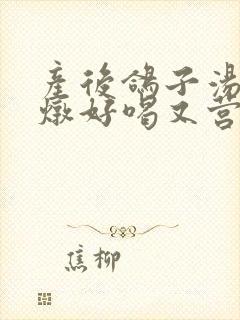 産後鴿子湯
燉好喝又营
焦柳